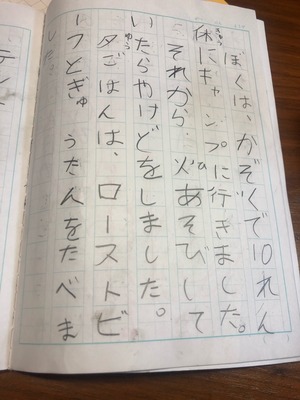 ぼくは、かぞくで10れん
休にキャンプに行きました。
それから、火あそびして
いたらやけどをしました。
夕ごはんは、ローストビ
ーフとぎゅうたんをたべま
した。